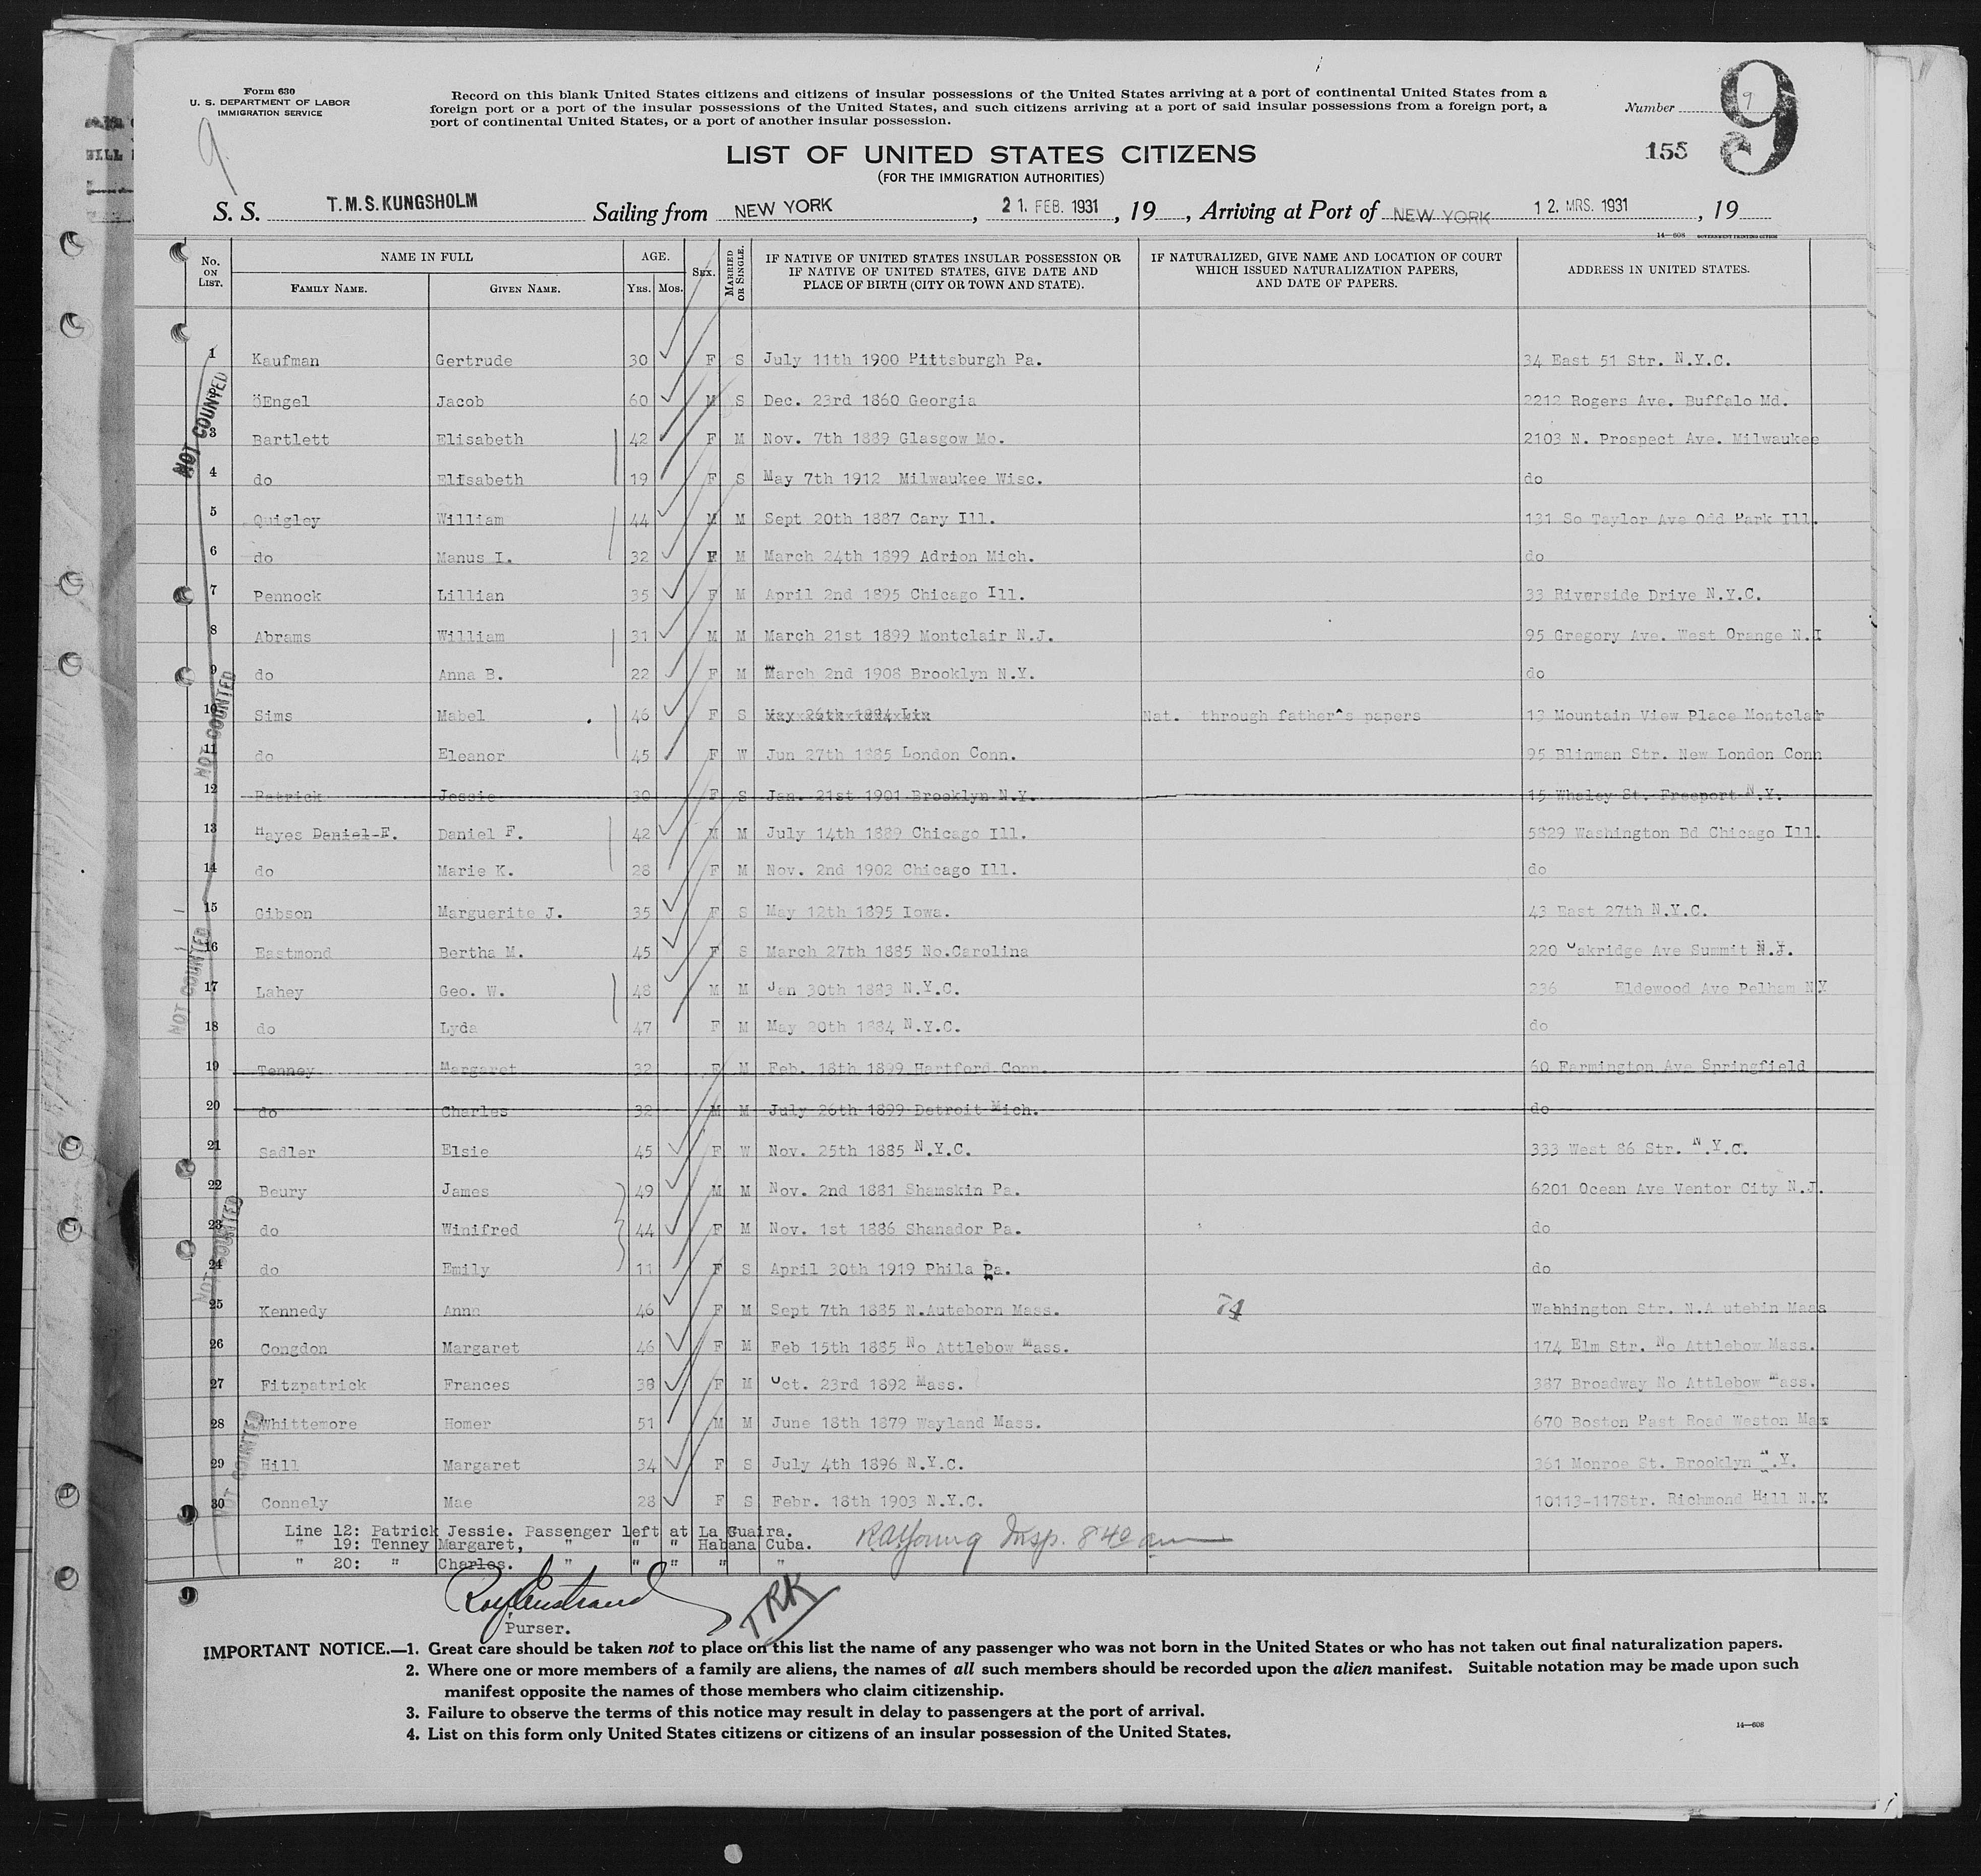 Form 630
U. S. DEPARTMENT OF LABOR
IMMIGRATION SERVICE
9
Record on this blank United States citizens and citizens of insular possessions of the United States arriving at a port of continental United States from a
foreign port or a port of the insular possessions of the United States, and such citizens arriving at a port of said insular possessions from a foreign port, a
port of continental United States, or a port of another insular possession.
Number 9
9
155
LIST OF UNITED STATES CITIZENS
(FOR THE IMMIGRATION AUTHORITIES)
S. S. T.M.S. KUNGSHOLM Sailing from NEW YORK, 21. FEB. 1931, 19, Arriving at Port of NEW YORK 12. MRS. 1931, 19
14—608 GOVERNMENT PRINTING OFFICE
No. ON LIST. NAME IN FULL FAMILY NAME. GIVEN NAME. AGE. YRS. MOS. SEX. MARRIED OR SINGLE. IF NATIVE OF UNITED STATES INSULAR POSSESSION OR IF NATIVE OF UNITED STATES, GIVE DATE AND PLACE OF BIRTH (CITY OR TOWN AND STATE). IF NATURALIZED, GIVE NAME AND LOCATION OF COURT WHICH ISSUED NATURALIZATION PAPERS, AND DATE OF PAPERS. ADDRESS IN UNITED STATES.
1 Kaufman Gertrude 30 F S July 11th 1900 Pittsburgh Pa. 34 East 51 Str. N.Y.C.
öEngel Jacob 60 M S Dec. 23rd 1860 Georgia 2212 Rogers Ave. Buffalo Md.
3 Bartlett Elisabeth 42 F M Nov. 7th 1889 Glasgow Mo. 2103 N. Prospect Ave. Milwaukee
4 do Elisabeth 19 F S May 7th 1912 Milwaukee Wisc. do
5 Quigley William 44 M M Sept 20th 1887 Cary Ill. 131 So Taylor Ave Odd Park Ill.
6 do Manus I. 32 F M March 24th 1899 Adrion Mich. do
7 Pennock Lillian 35 F M April 2nd 1895 Chicago Ill. 33 Riverside Drive N.Y.C.
8 Abrams William 31 M M March 21st 1899 Montclair N.J. 95 Gregory Ave. West Orange N.J
9 do Anna B. 22 F M March 2nd 1908 Brooklyn N.Y. do
10 Sims Mabel 46 F S May 26th 1894 Nat. through father's papers 13 Mountain View Place Montclair
11 do Eleanor 45 F W Jun 27th 1885 London Conn. 95 Blinman Str. New London Conn
12 Patrick Jessie 30 F S Jan. 21st 1901 Brooklyn N.Y. 15 Whaley St. Freeport N.Y.
13 Hayes Daniel F. Daniel F. 42 M M July 14th 1889 Chicago Ill. 5829 Washington Bd Chicago Ill.
14 do Marie K. 28 F M Nov. 2nd 1902 Chicago Ill. do
15 Gibson Marguerite J. 35 F S May 12th 1895 Iowa. 43 East 27th N.Y.C.
16 Eastmond Bertha M. 45 F S March 27th 1885 No.Carolina 220 Oakridge Ave Summit N.J.
17 Lahey Geo. W. 48 M M Jan 30th 1883 N.Y.C. 236 Eldewood Ave Pelham N.Y
18 do Lyda 47 F M May 20th 1884 N.Y.C. do
19 Tenney Margaret 32 F M Feb. 18th 1899 Hartford Conn. 60 Farmington Ave Springfield
20 do Charles 32 M M July 26th 1899 Detroit Mich. do
21 Sadler Elsie 45 F W Nov. 25th 1885 N.Y.C. 333 West 86 Str. N.Y.C.
22 Beury James 49 M M Nov. 2nd 1881 Shamskin Pa. 6201 Ocean Ave Ventor City N.J.
23 do Winifred 44 F M Nov. 1st 1886 Shanador Pa. do
24 do Emily 11 F S April 30th 1919 Phila Pa. do
25 Kennedy Anna 46 F M Sept 7th 1885 N.Auteborn Mass. 74 Wahhington Str. N.A utebin Mass
26 Congdon Margaret 46 F M Feb 15th 1885 No Attlebow Mass. 174 Elm Str. No Attlebow Mass.
27 Fitzpatrick Frances 38 F M Oct. 23rd 1892 Mass. 387 Broadway No Attlebow Mass.
28 Whittemore Homer 51 M M June 18th 1879 Wayland Mass. 670 Boston Past Road Weston Mas
29 Hill Margaret 34 F S July 4th 1896 N.Y.C. 361 Monroe St. Brooklyn N.Y.
30 Connely Mae 28 F S Febr. 18th 1903 N.Y.C. 10113-117Str. Richmond Hill N.Y.
NOT COUNTED
NOT COUNTED
NOT COUNTED
NOT COUNTED
NOT COUNTED
Line 12: Patrick Jessie. Passenger left at La Guaira.
" 19: Tenney Margaret, " " " Habana Cuba.
" 20: " Charles. " " " " "
RAYoung Insp. 840 am
TRK
Purser.
9
IMPORTANT NOTICE.—1. Great care should be taken not to place on this list the name of any passenger who was not born in the United States or who has not taken out final naturalization papers.
2. Where one or more members of a family are aliens, the names of all such members should be recorded upon the alien manifest. Suitable notation may be made upon such
manifest opposite the names of those members who claim citizenship.
3. Failure to observe the terms of this notice may result in delay to passengers at the port of arrival.
4. List on this form only United States citizens or citizens of an insular possession of the United States.
14—608